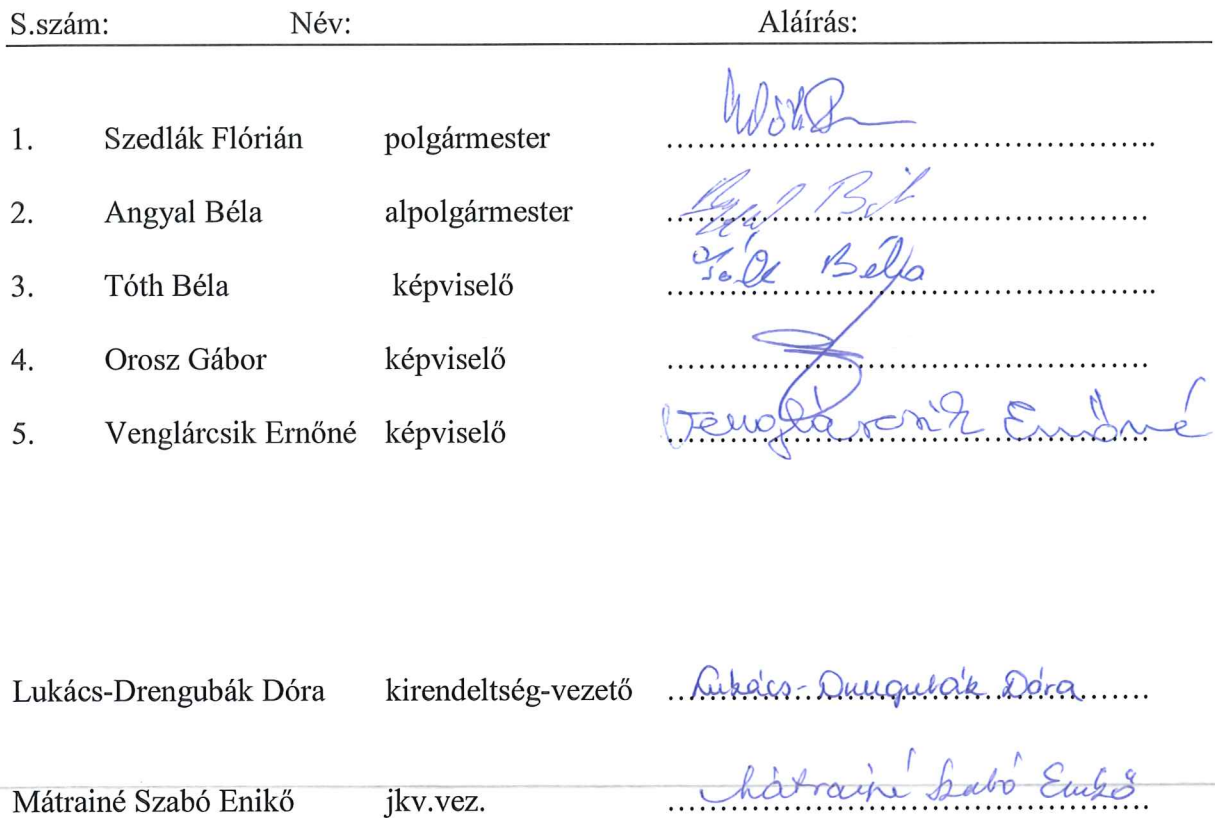 S.szám: Név: Aláírás:
1. Szedlák Flórián polgármester ...............................................
2. Angyal Béla alpolgármester ...............................................
3. Tóth Béla képviselő Tóth Béla
4. Orosz Gábor képviselő ...............................................
5. Venglárcsik Ernőné képviselő Venglárcsik Ernőné
Lukács-Drengubák Dóra kirendeltség-vezető Lukács-Drengubák Dóra
Mátrainé Szabó Enikő jkv.vez. Mátrainé Szabó Enikő